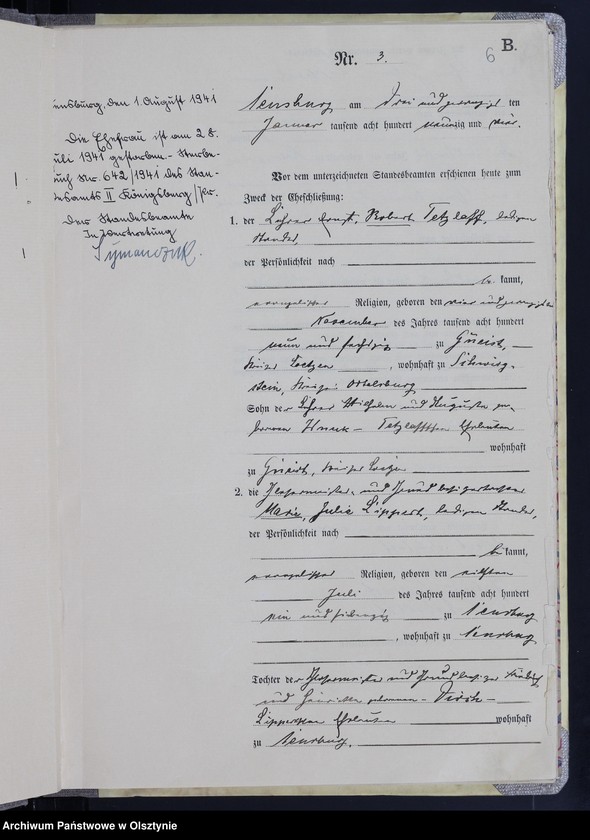 6 B.
Nr. 3.
ensburg, den 1. August 1941
Die Ehefrau ist am 28.
uli 1941 gestorben. – Sterbe-
buch Nr. 642/1941 des Stan-
desamts II Königsberg/Pr.
Der Standesbeamte
In Vertretung
Symanczik.
Sensburg am Drei und zwanzig ten
Januar tausend acht hundert neunzig und vier.
Vor dem unterzeichneten Standesbeamten erschienen heute zum
Zweck der Eheschließung:
1. der Lehrer Ernst, Robert Tetzlaff, ledigen
Standes,
der Persönlichkeit nach
be kannt,
evangelischer Religion, geboren den vier und zwanzigsten
November des Jahres tausend acht hundert
neun und sechzig zu
Kreises Loetzen, wohnhaft zu
Kreises Ortelsburg
Sohn der Lehrer Wilhelm und Auguste ge-
borenen Tetzlaffschen Eheleuten
wohnhaft
zu
2. die
Marie, Julie Lippert, ledigen Standes,
der Persönlichkeit nach
be kannt,
evangelischer Religion, geboren den elften
Juli des Jahres tausend acht hundert
ein und siebenzig zu Sensburg
, wohnhaft zu Sensburg
Tochter der und
und Henriette geborenen
Lippertschen Eheleuten wohnhaft
zu Sensburg.
Archiwum Państwowe w Olsztynie